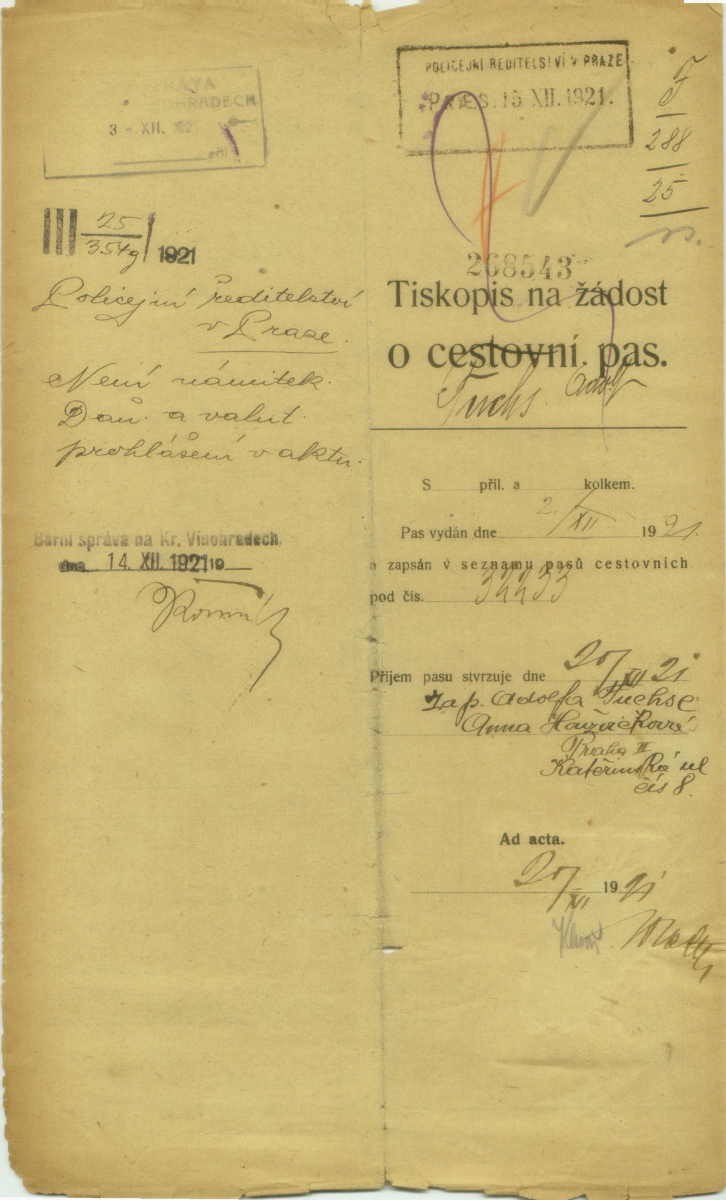 3 - XII.
III 25
354g / 1921
Policejní ředitelství
v Praze.
Není námitek.
Daň. a valut.
prohlášení v aktu.
Berní správa na Kr. Vinohradech,
dne 14. XII. 1921 19
POLICEJNÍ ŘEDITELSTVÍ V PRAZE
PRAES. 15 XII. 1921.
F
288
25
268543
Tiskopis na žádost
o cestovní pas.
Fuchs Adolf
S příl. a kolkem.
Pas vydán dne 2./XII 1921.
a zapsán v seznamu pasů cestovních
pod čís. 32233
Příjem pasu stvrzuje dne 20/XII 21
Za p. Adolfa Fuchse
Anna
Praha II
Kateřinská ul
čís 8.
Ad acta.
20/XII 1921